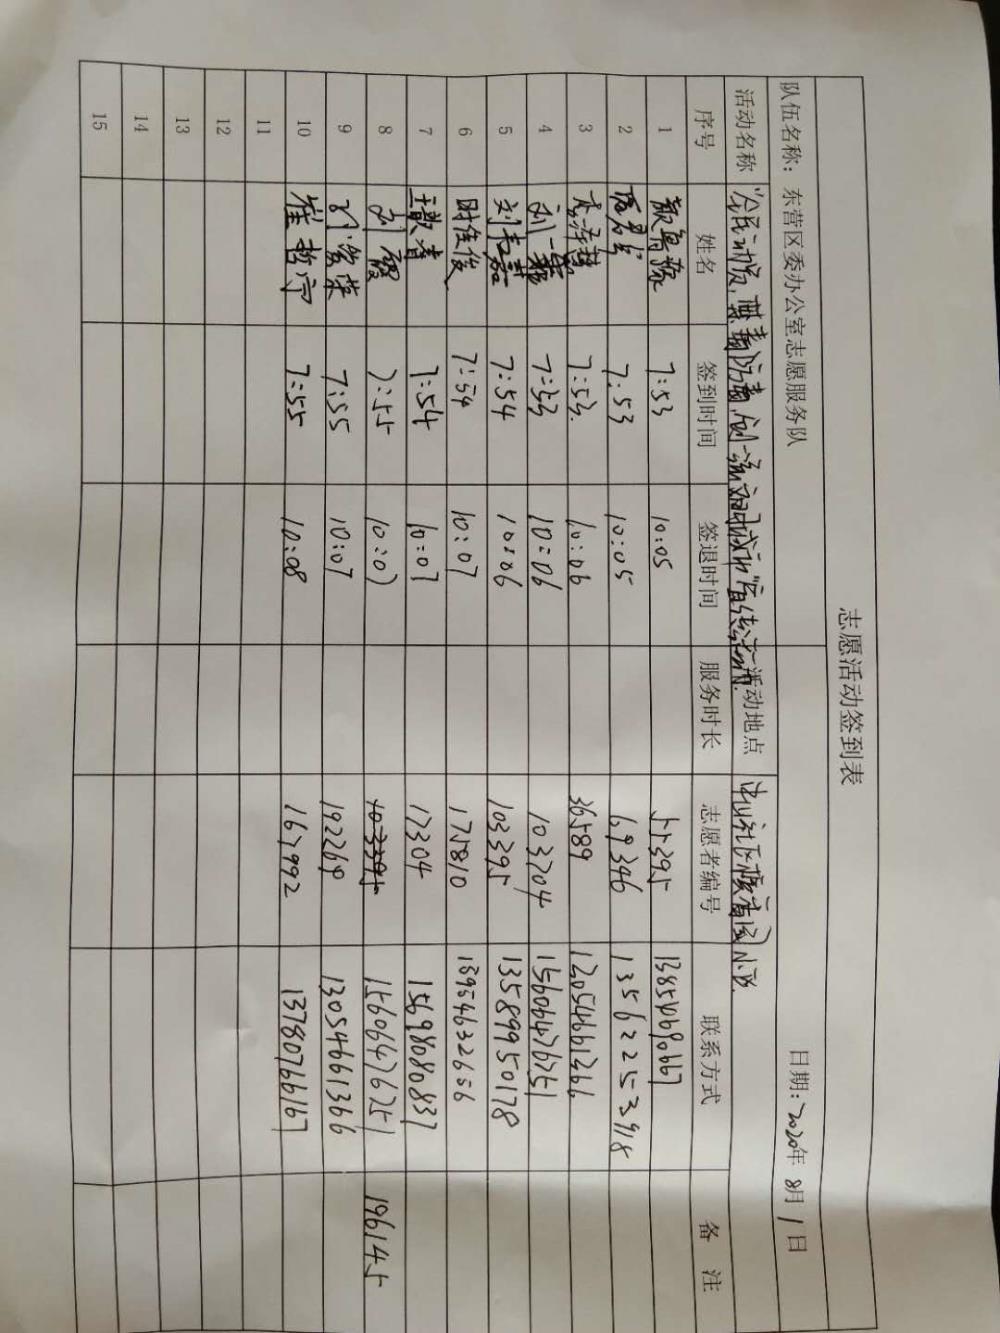 志愿活动签到表
队伍名称：东营区委办公室志愿服务队 日期：2020年8月1日
活动名称 "全民动员，禁毒防毒，创一流文明城市"宣传活动 活动地点 小区
序号 姓名 签到时间 签退时间 服务时长 志愿者编号 联系方式 备 注
1 7:53 10:05 55395
2 7:53 10:05 69346 13562253918
3 7:53. 10:06 36589 13054661366
4 刘一霖 7:53 10:06 103704 15606476751
5 7:54 10:06 103395 13589950178
6 时佳俊 7:54 10:07 175810 18954632656
7 7:54 10:07 17304 15698080837
8 刘霞 7:55 10:07 103395 15606476751 196145
9 7:55 10:07 192269 13054661366
10 崔哲宁 7:55 10:08 167992 13780766167
11
12
13
14
15